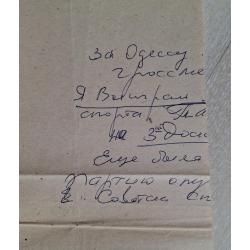 За Одессу.
гроссме
Я Выиграл
спорта. Гла
на 3ей Доск
Еще была
Партию опу
Е. Советск